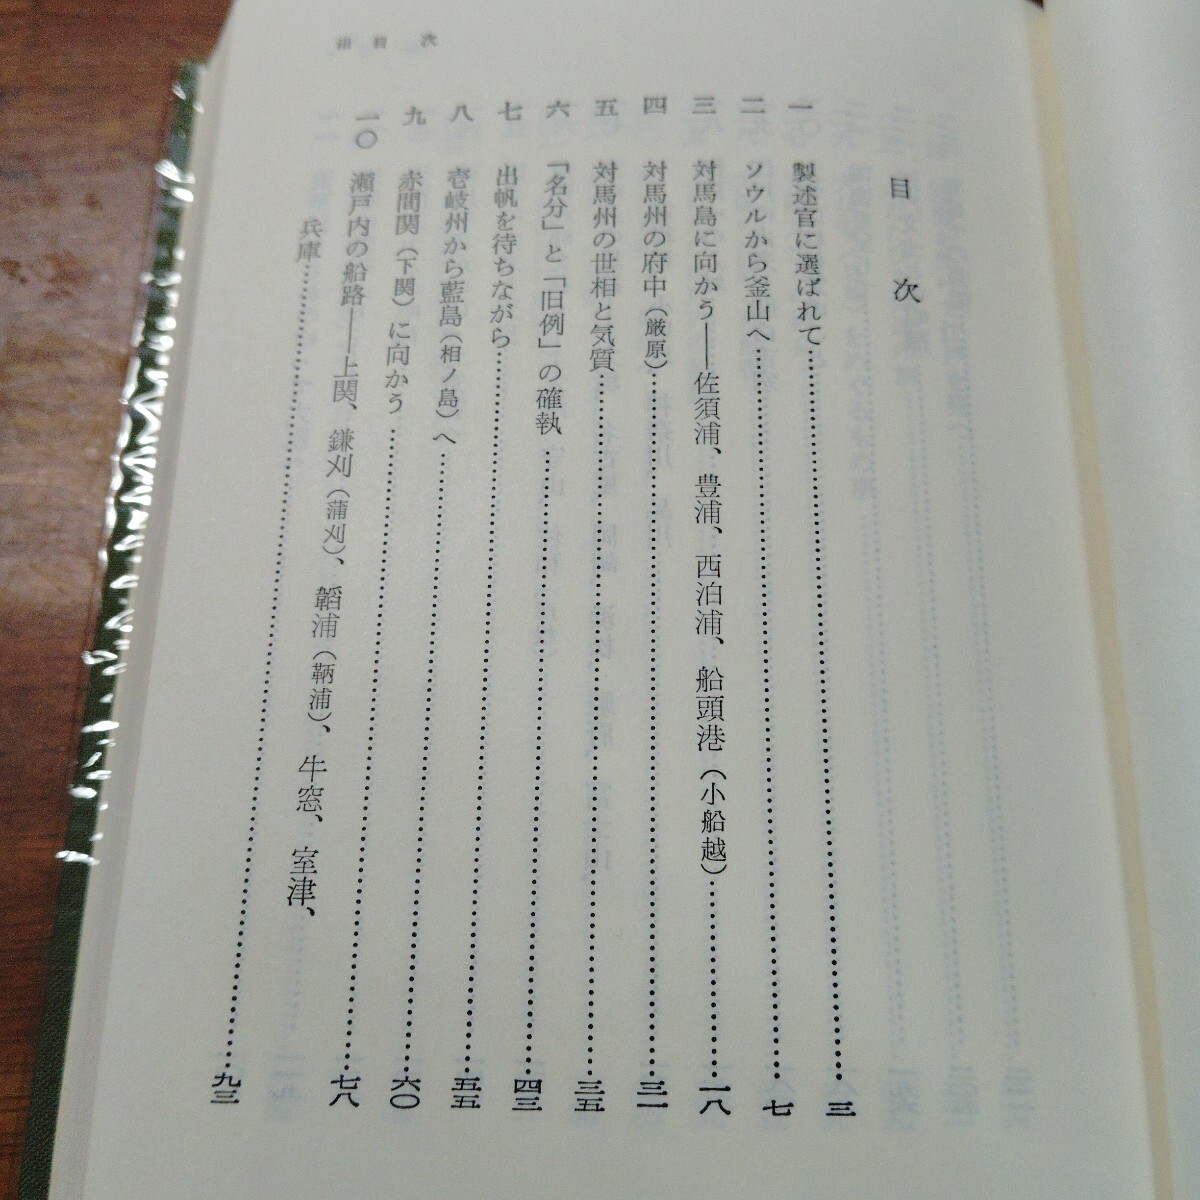 目 次
目 次
一 製述官に選ばれて……三
二 ソウルから釜山へ……七
三 対馬島に向かう――佐須浦、豊浦、西泊浦、船頭港（小船越）……一八
四 対馬州の府中（厳原）……三一
五 対馬州の世相と気質……三五
六 「名分」と「旧例」の確執……四三
七 出帆を待ちながら……五五
八 壱岐州から藍島（相ノ島）へ……六〇
九 赤間関（下関）に向かう……七八
一〇 瀬戸内の船路――上関、鎌刈（蒲刈）、韜浦（鞆浦）、牛窓、室津、
兵庫……九三